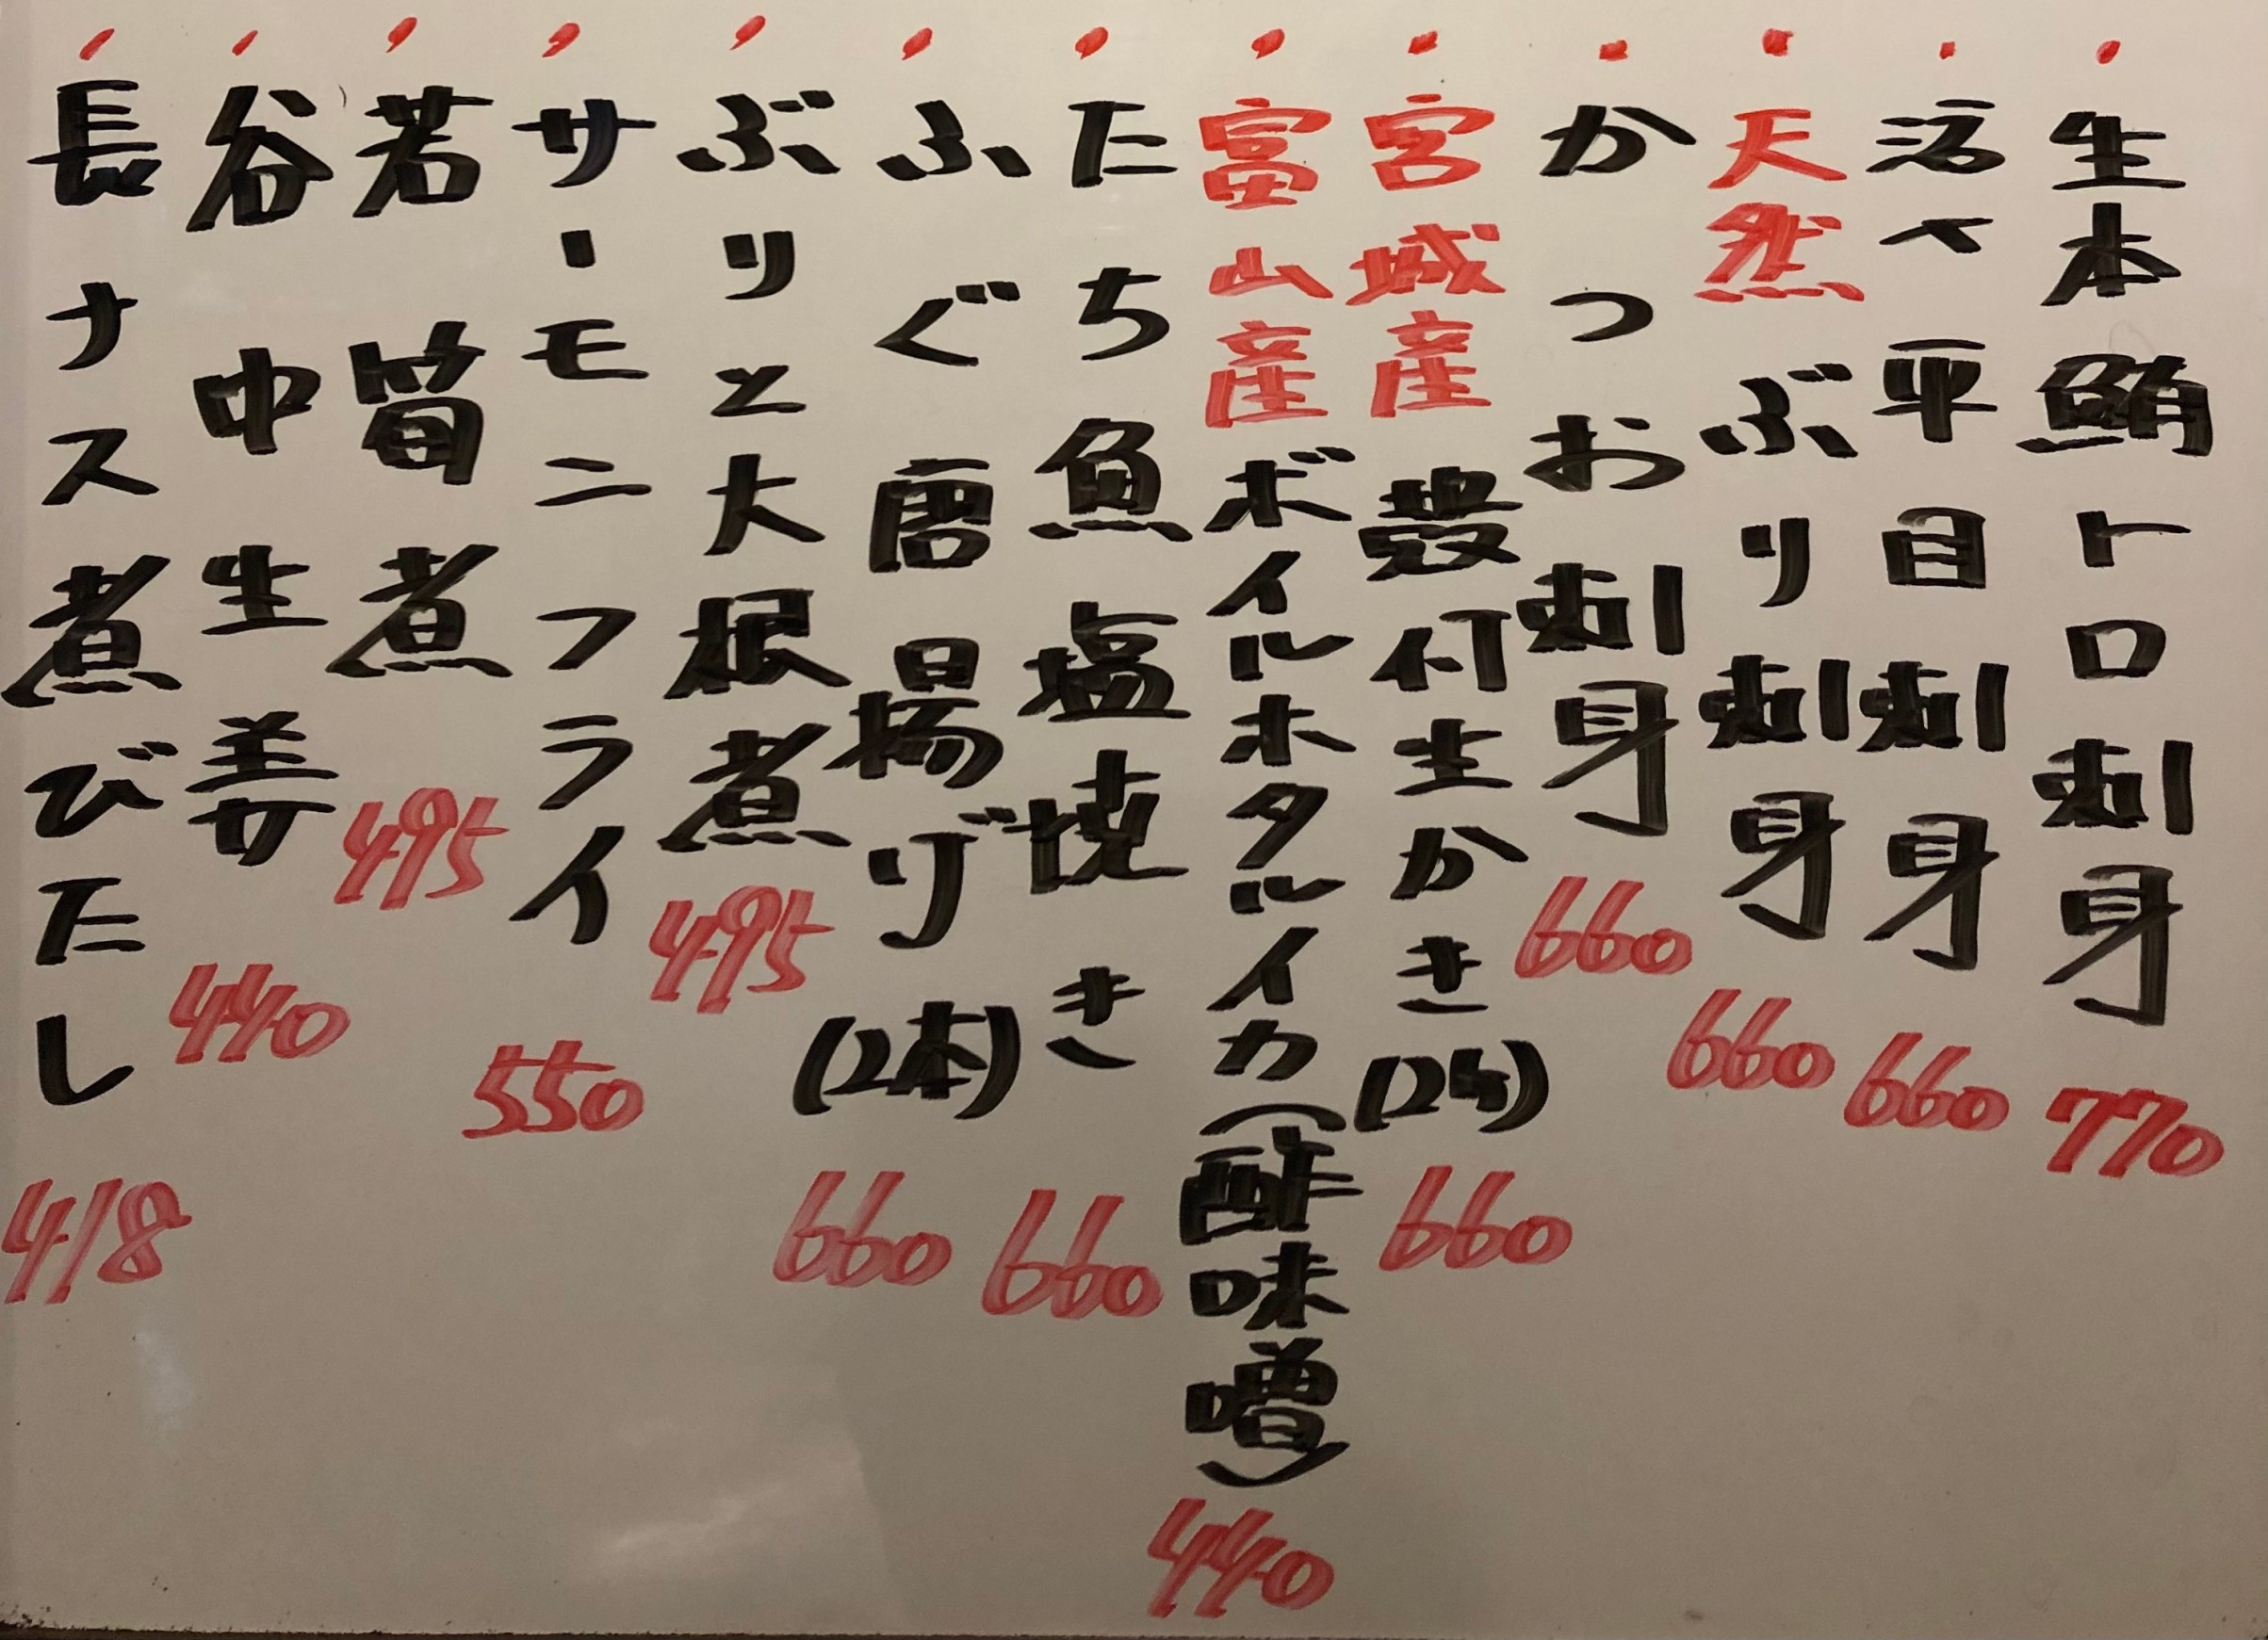 ・生本鮪トロ刺身 770
・活〆平目刺身 660
・天然ぶり刺身 660
・かつお刺身 660
・宮城産殻付生かき(2ケ) 660
・富山産ボイルホタルイカ(酢味噌) 440
・たち魚塩焼き 660
・ふぐ唐揚げ(2本) 660
・ぶりと大根煮 495
・サーモンフライ 550
・若筍煮 495
・谷中生姜 440
・長ナス煮びたし 418